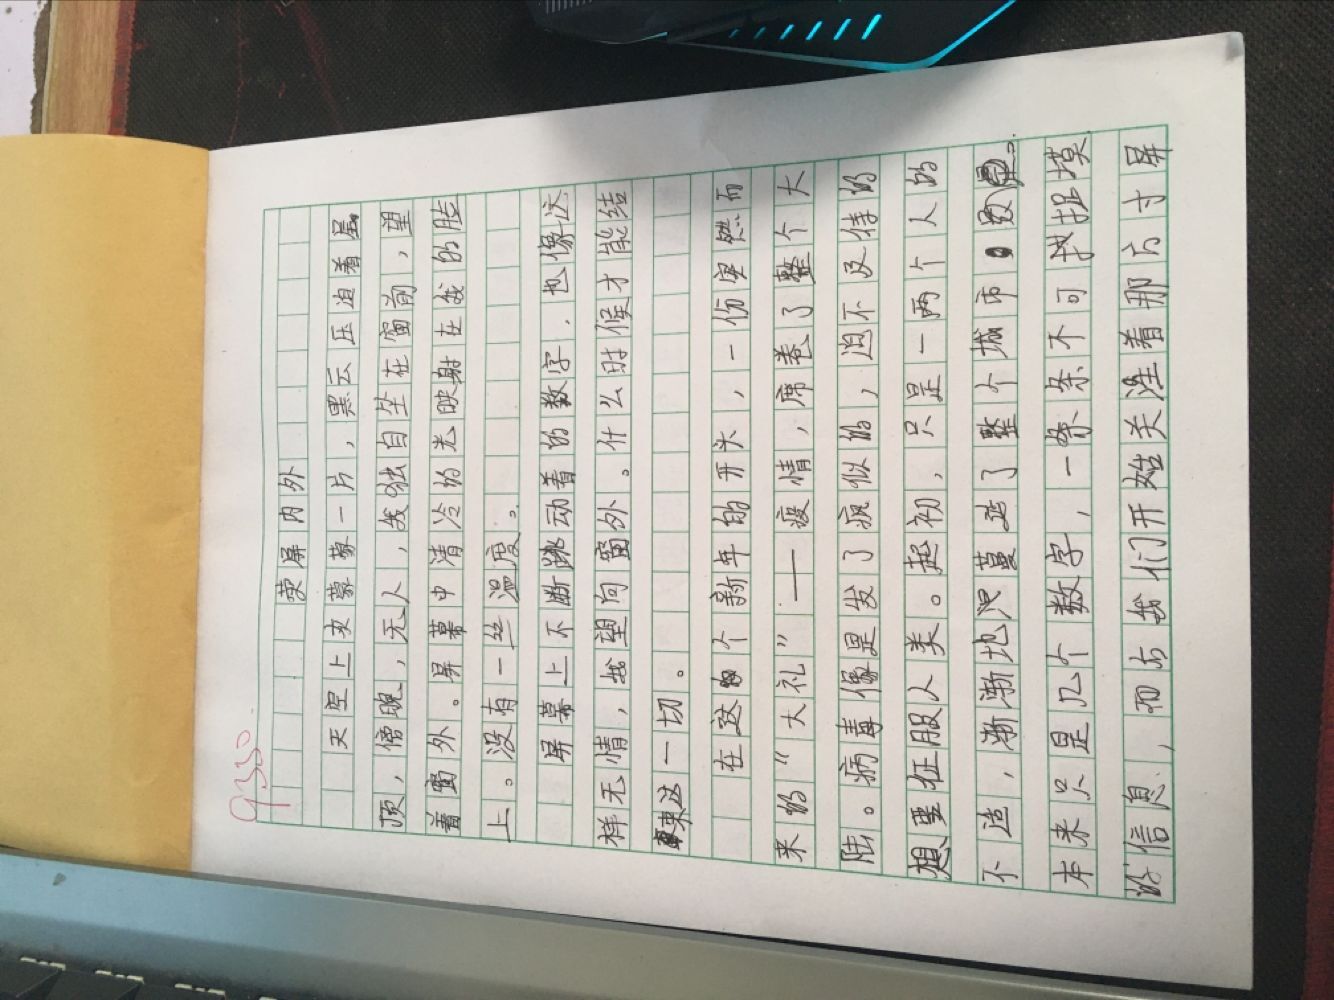 9330
荧屏内外
天空上灰蒙蒙一片，黑云压迫着屋
顶，傍晚，无人，我独自坐在窗前，望
着窗外。屏幕中清冷的光映射在我的脸
上。没有一丝温度。
屏幕上不断跳动着的数字，也像这
样无情，我望向窗外。什么时候才能结
束这一切。
在这个新年的开头，一伤突然而
来的“大礼”——疫情，席卷了整个大
陆。病毒像是发了疯似的，迫不及待的
想要征服人类。起初，只是一两个人的
不适，渐渐地蔓延了整个城市。
本来只是几个数字，一条条不可捉摸
的信息，而当我们开始关注着那方寸屏